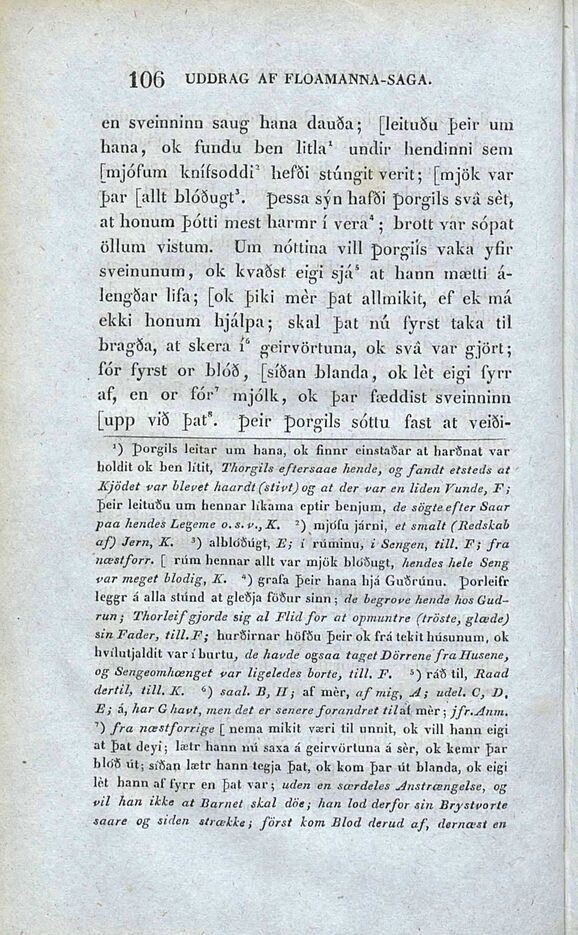 106 UDDRAG AF FLOAMANNA-SAGA.
en sveinninn saug hana dauða; [leituðu þeir um
hana, ok fundu ben litla¹ undir hendinni sem
[mjófum knífsoddi² hefði stúngit verit; [mjök var
þar [allt blóðugt³. Þessa sýn hafði Þorgils svâ sèt,
at honum þótti mest harmr í vera⁴; brott var sópat
öllum vistum. Um nóttina vill Þorgils vaka yfir
sveinunum, ok kvaðst eigi sjá⁵ at hann mætti á-
lengðar lifa; [ok þiki mèr þat allmikit, ef ek má
ekki honum hjálpa; skal þat nú fyrst taka til
bragða, at skera í⁶ geirvörtuna, ok svâ var gjört;
fór fyrst or blóð, [síðan blanda, ok lèt eigi fyrr
af, en or fór⁷ mjólk, ok þar fæddist sveinninn
[upp við þat⁸. Þeir Þorgils sóttu fast at veiði-
¹) Þorgils leitar um hana, ok finnr einstaðar at harðnat var
holdit ok ben lítit, Thorgils eftersaae hende, og fandt etsteds at
Kjödet var blevet haardt (stivt) og at der var en liden Vunde, F;
Þeir leituðu um hennar líkama eptir benjum, de sögte efter Saar
paa hendes Legeme o. s. v., K. ²) mjófu járni, et smalt (Redskab
af) Jern, K. ³) alblóðúgt, E; í rúminu, i Sengen, till. F; fra
næstforr. [ rúm hennar allt var mjök blóðugt, hendes hele Seng
var meget blodig, K. ⁴) grafa þeir hana hjá Guðrúnu. Þorleifr
leggr á alla stúnd at gleðja föður sinn; de begrove hende hos Gud-
run; Thorleif gjorde sig al Flid for at opmuntre (tröste, glæde)
sin Fader, till. F; hurðirnar höfðu þeir ok frá tekit húsunum, ok
hvílutjaldit var í burtu, de havde ogsaa taget Dörrene fra Husene,
og Sengeomhænget var ligeledes borte, till. F. ⁵) ráð til, Raad
dertil, till. K. ⁶) saal. B, H; af mèr, af mig, A; udel. C, D,
E; á, har G havt, men det er senere forandret til at mèr; jfr. Anm.
⁷) fra næstforrige [ nema mikit væri til unnit, ok vill hann eigi
at þat deyi; lætr hann nú saxa á geirvörtuna á sèr, ok kemr þar
blóð út; síðan lætr hann tegja þat, ok kom þar út blanda, ok eigi
lèt hann af fyrr en þat var; uden en særdeles Anstrængelse, og
vil han ikke at Barnet skal döe; han lod derfor sin Brystvorte
saare og siden strække; först kom Blod derud af, dernæst en